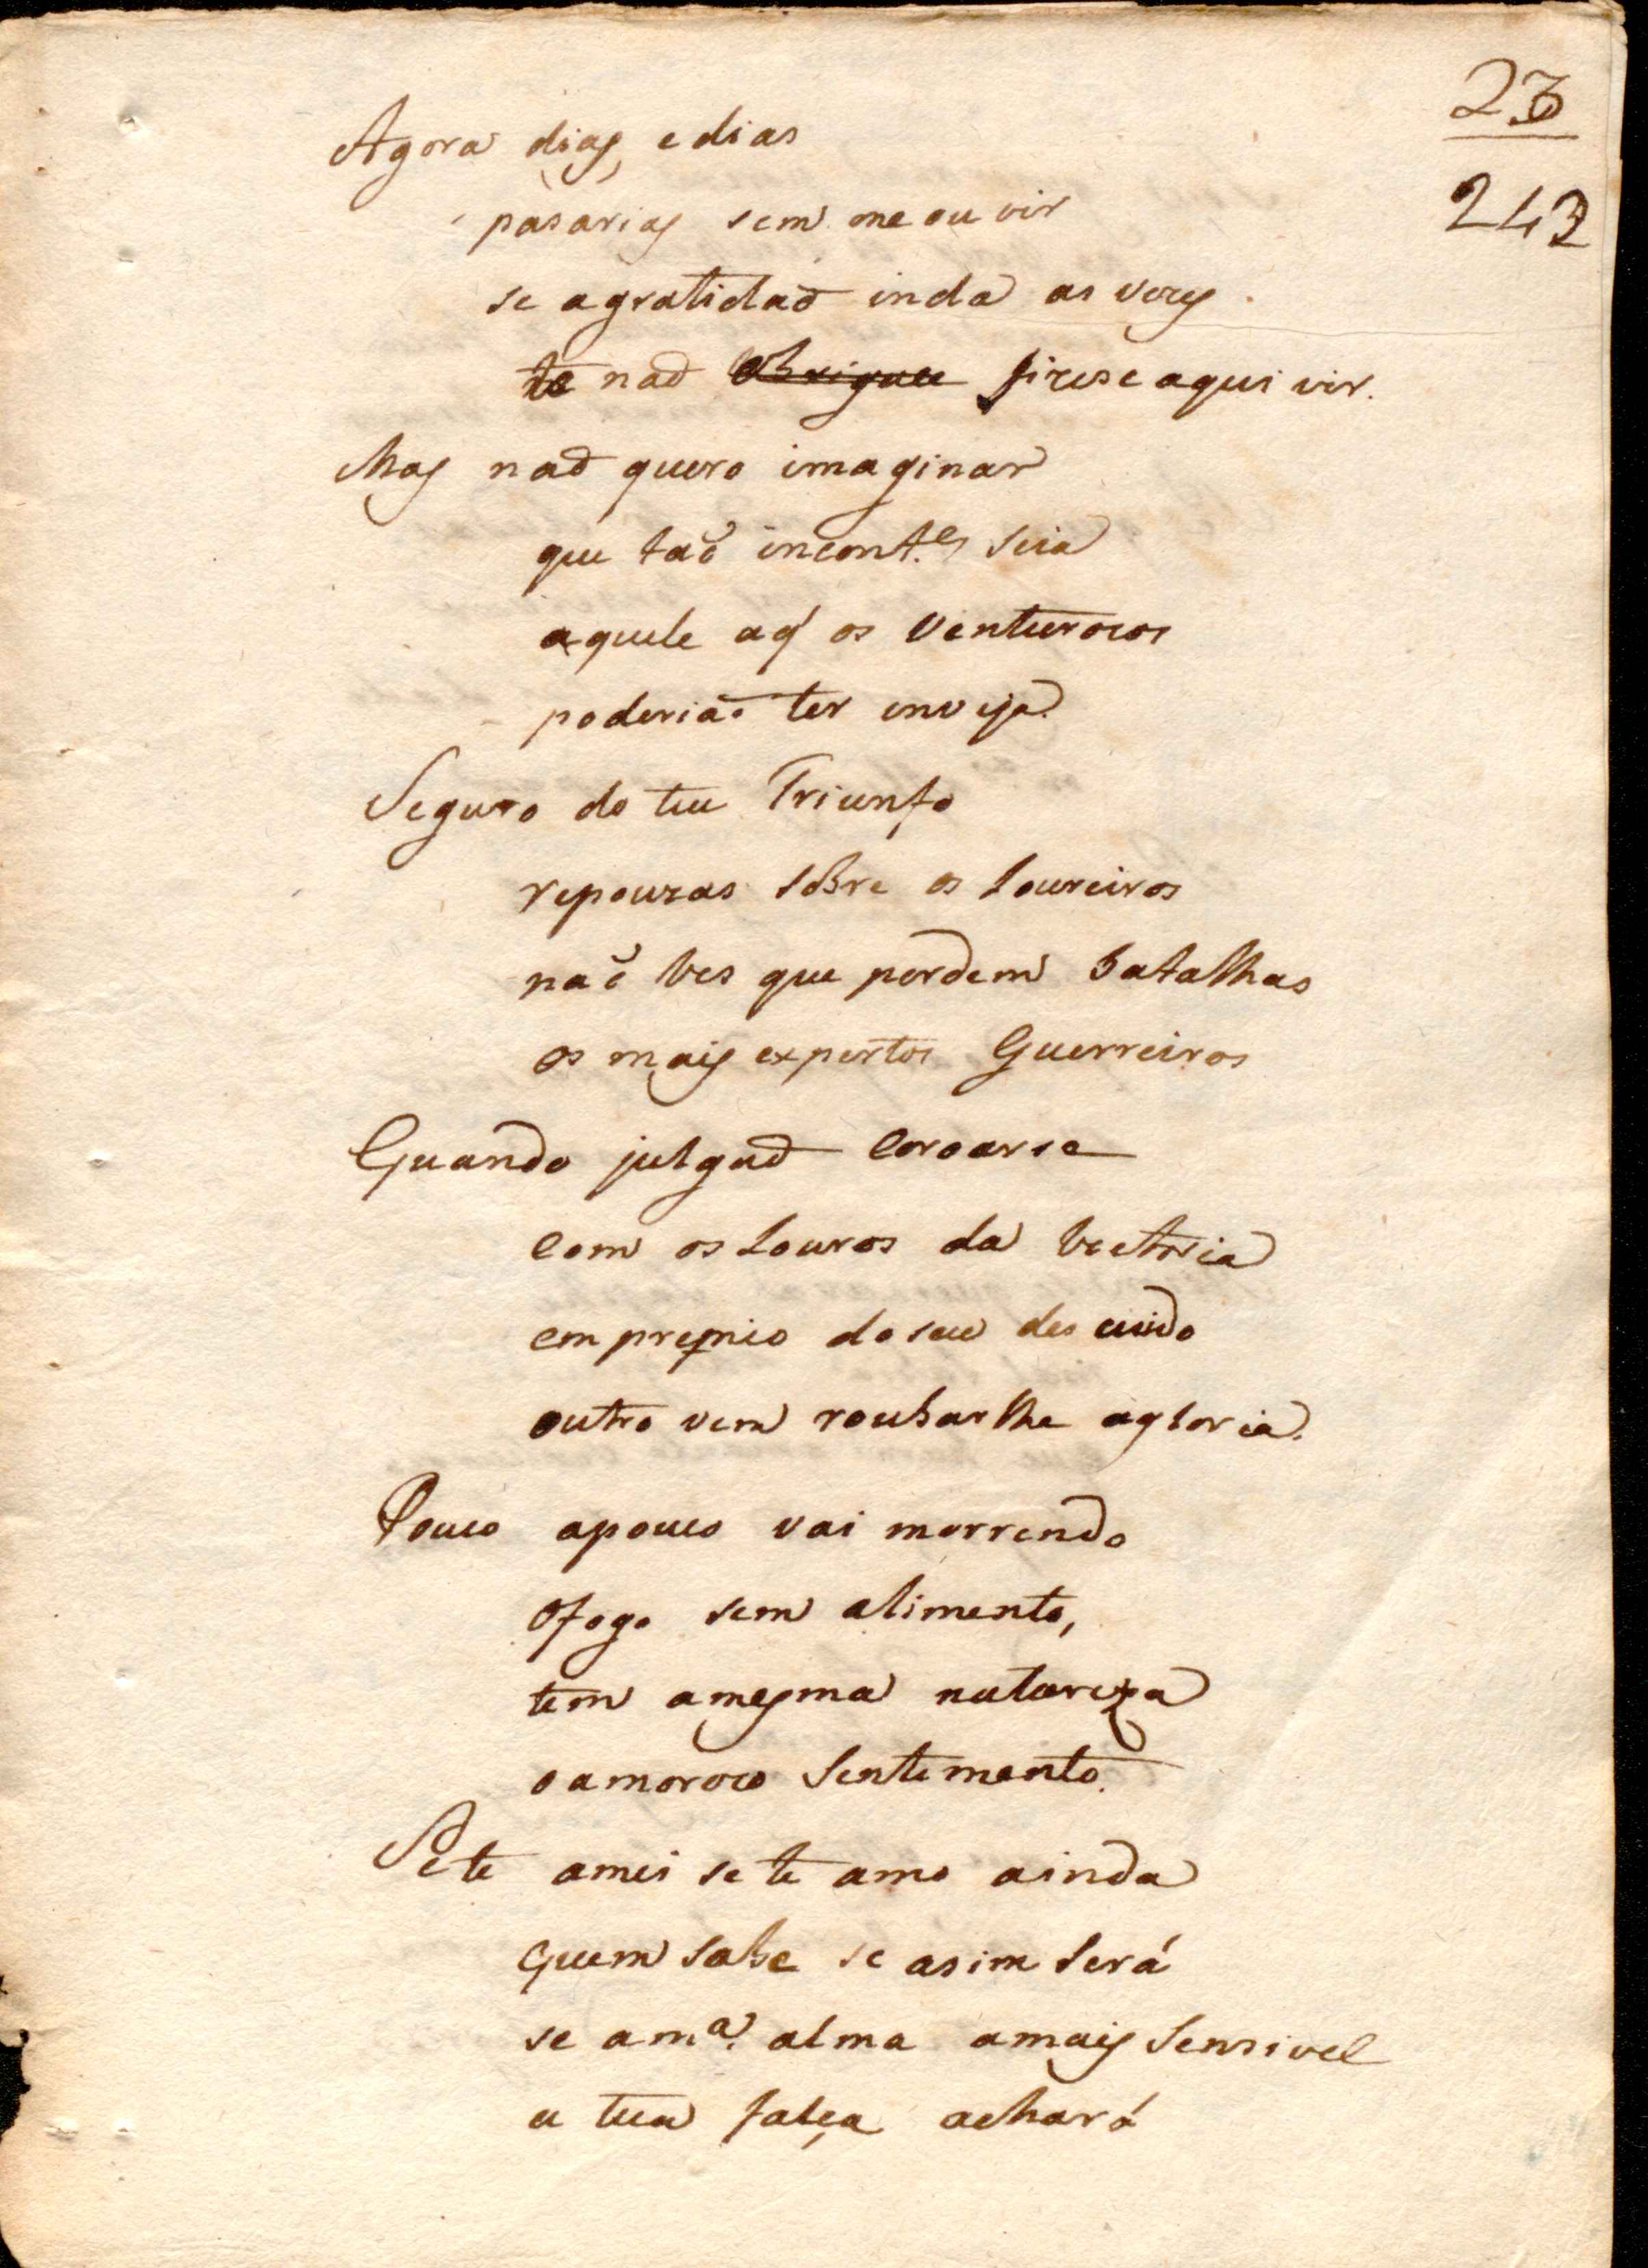 23
243
Agora dias, e dias
pasarias sem me ouvir
se a gratidaõ inda as vezes
te naõ obrigace fizese aqui vir.
Mas naõ quero imaginar
que taõ incont.es seia
aquele a q̃ os Venturosos
poderiaõ ter inveja.
Seguro do teu Triunfo
repouzas sobre os Loureiros
naõ ves que perdem batalhas
os mais expertos Guerreiros
Quando julgaõ Coroarse
com os Louros da Victoria
em premio do seu descuido
outro vem roubarlhe agloria.
Pouco apouco vai morrendo
Ofogo sem alimento,
tem amesma natureza
o amoroco Sentimento.
Se te amei se te amo ainda
quem sabe se asim será
se am.a alma amais Sensivel
a tua falça achará